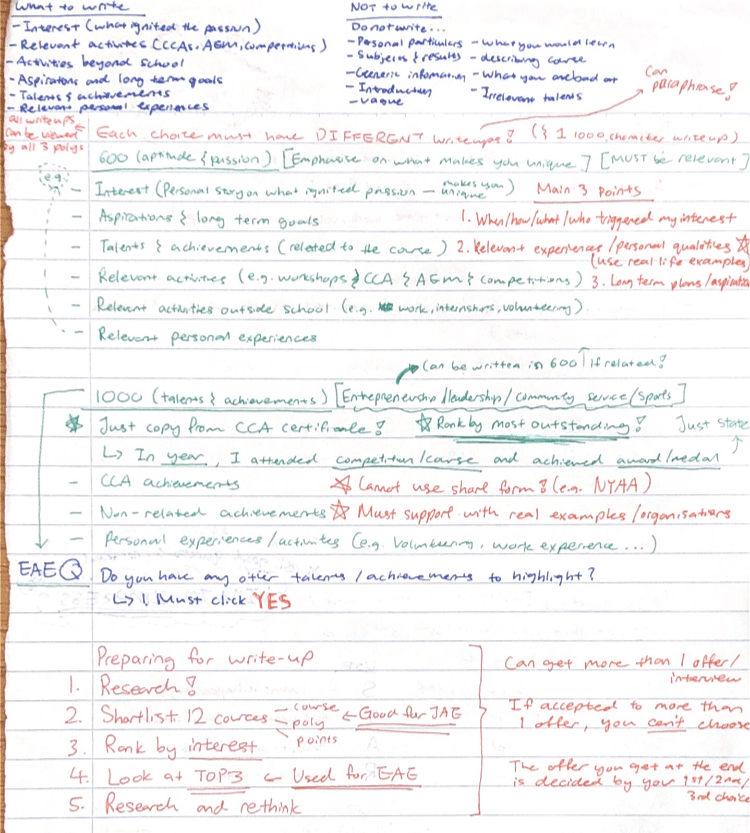 What to write
- Interest (what ignited the passion)
- Relevant activities (CCAs, AEM, competitions)
- Activities beyond school
- Aspirations and long term goals
- Talents & achievements
- Relevant personal experiences
NOT to write
Do not write...
- Personal particulars
- Subjects & results
- Generic information
- Introduction
- vague
- what you would learn
- describing course
- What you are bad at
- Irrelevant talents
Can paraphrase!
all write ups can be viewed by all 3 polys
Each choice must have DIFFERENT writeups! (& 1 1000 character write up)
600 (aptitude & passion) [Emphasise on what makes you unique] [MUST be relevant]
e.g.
- Interest (Personal story on what ignited passion – makes you unique)
Main 3 Points
- Aspirations & long term goals
1. When/how/what/who triggered my interest
- Talents & achievements (related to the course)
2. Relevant experiences/personal qualities
(use real life examples)
- Relevant activities (e.g. workshops & CCA & AEM & competitions)
3. Long term plans/aspiration
- Relevant activities outside school (e.g. work, internships, volunteering)
- Relevant personal experiences
Can be written in 600 if related!
1000 (talents & achievements) [Entrepreneurship/leadership/community service/sports]
Just copy from CCA certificate!
Rank by most outstanding!
Just state
↳ In year, I attended competition/course and achieved award/medal
- CCA achievements
Cannot use short form! (e.g. NYAA)
- Non-related achievements
Must support with real examples/organisations
- Personal experiences/activites (e.g. Volunteering, work experience...)
EAE Q
Do you have any other talents/achievements to highlight?
↳ 1. Must click YES
Preparing for write-up
1. Research!
2. Shortlist 12 cources
course
poly
points
← Good for JAE
3. Rank by interest
4. Look at TOP 3 ← Used for EAE
5. Research and rethink
Can get more than 1 offer/
interview
If accepted to more than
1 offer, you can't choose
The offer you get at the end
is decided by you 1st/2nd/
3rd choice